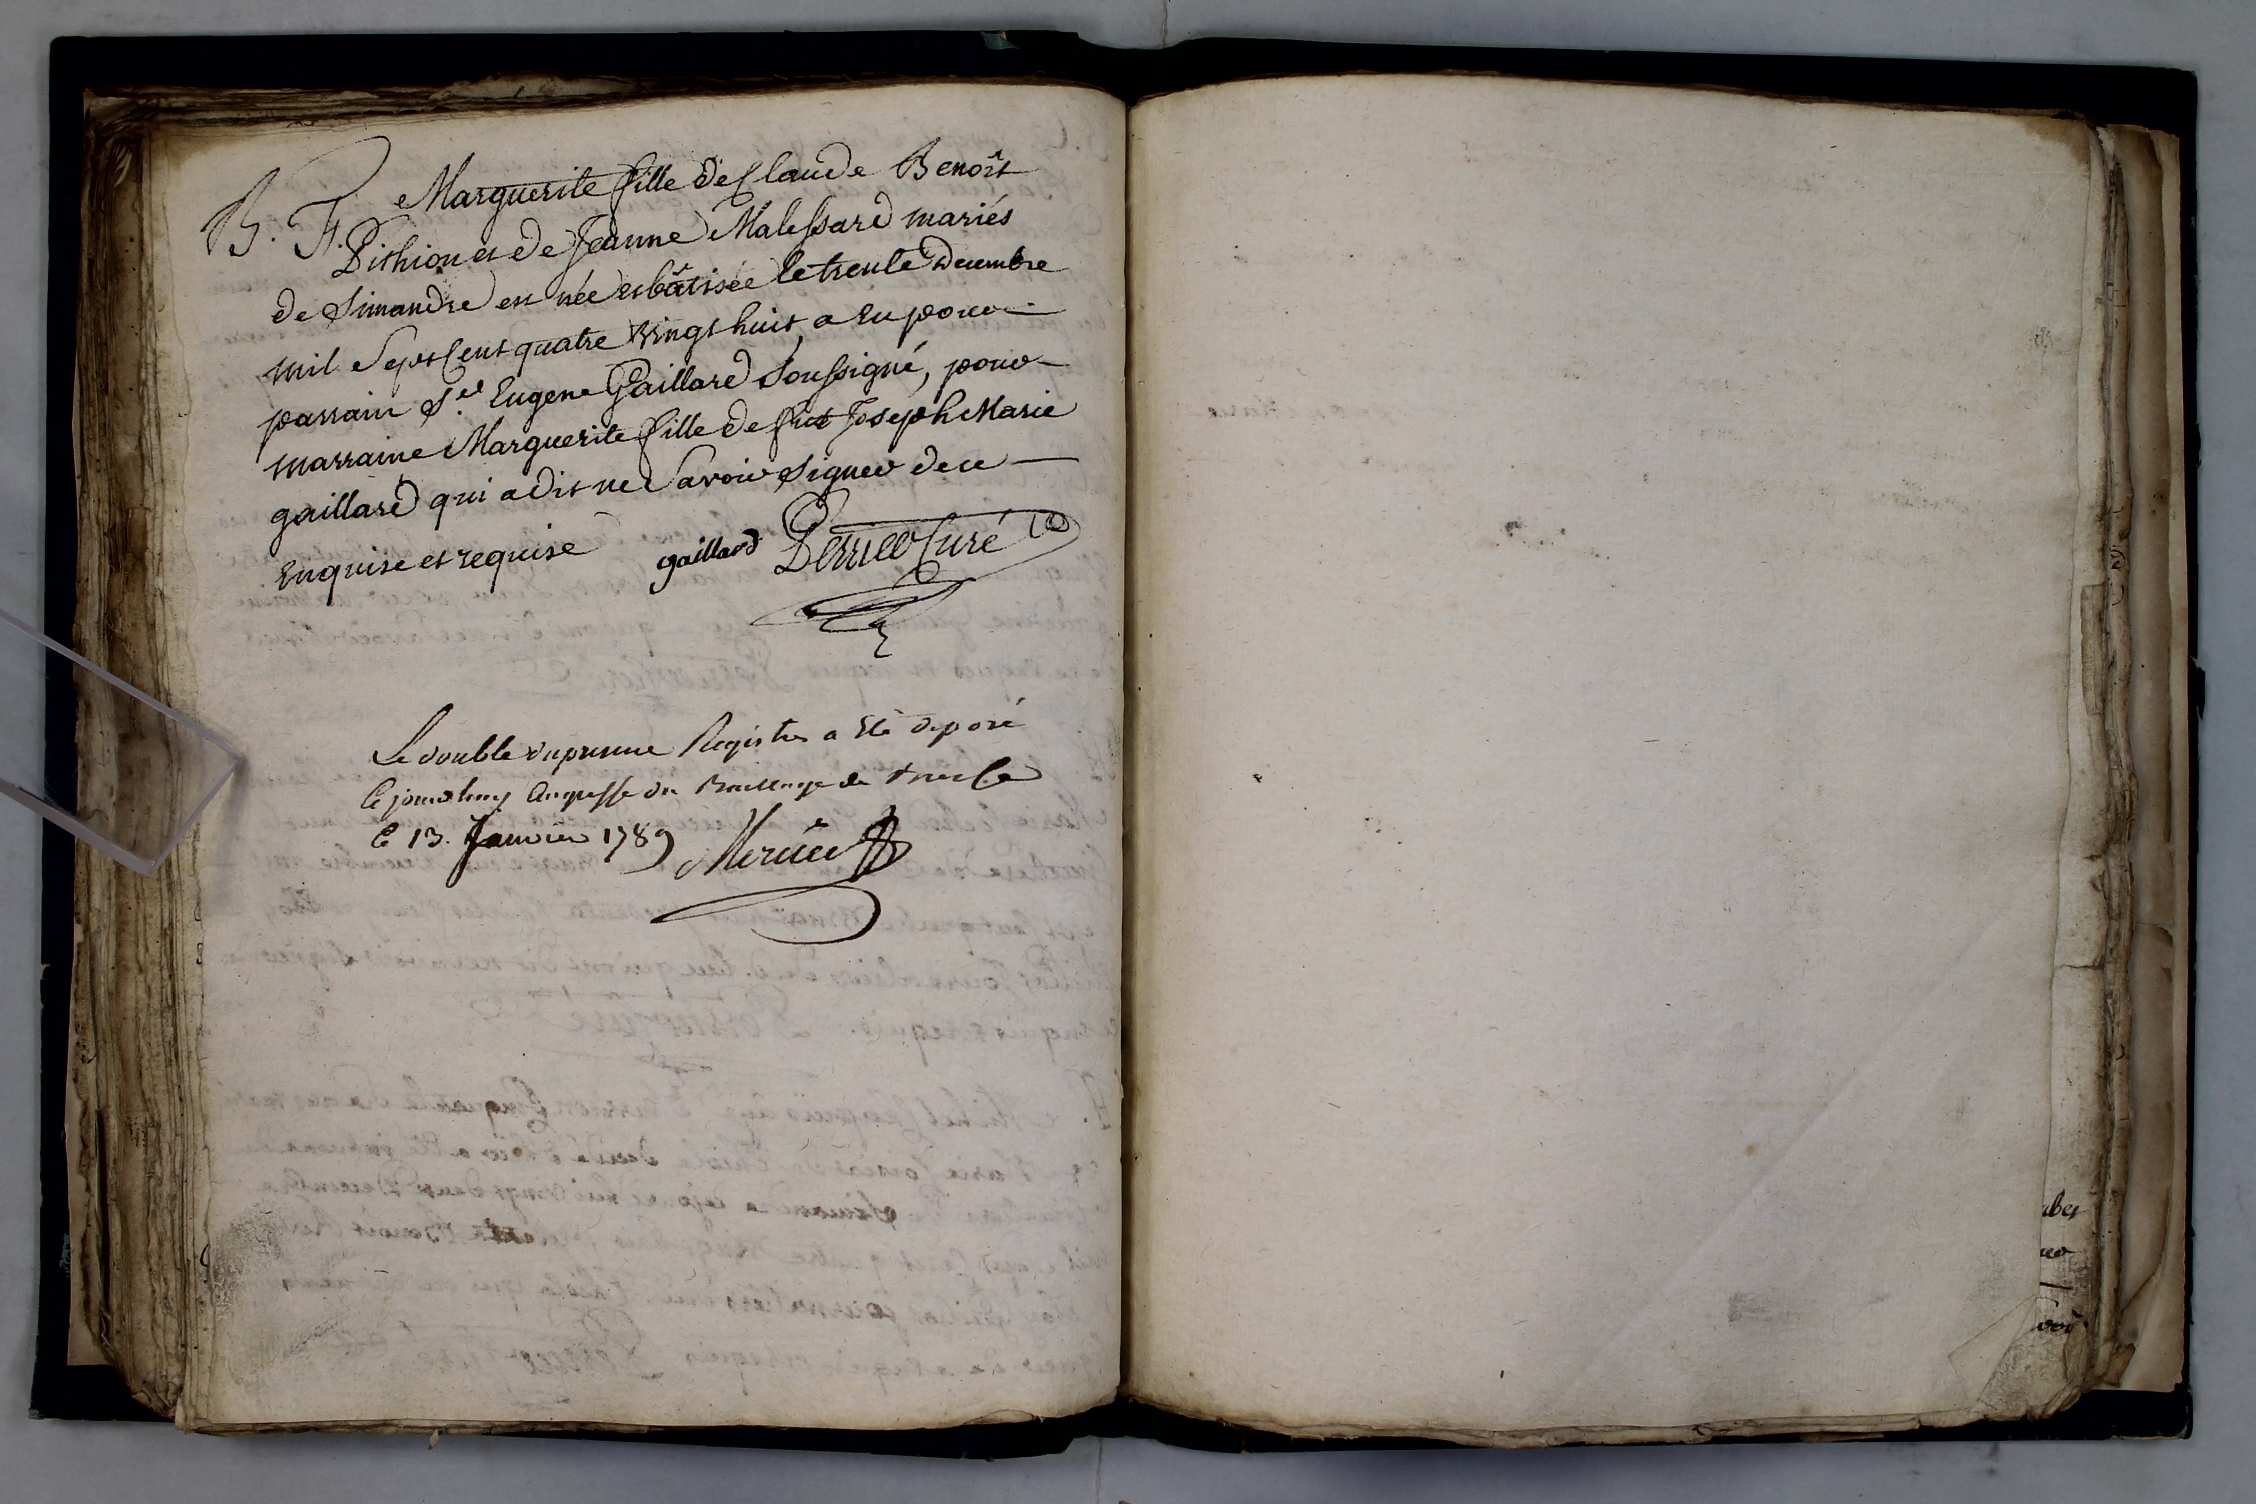 B. F. Marguerite fille de Claude Benoît
Pithion et de Jeanne Malessard mariés
de Simandre est née et bâtisée le trente Decembre
mil Sept Cent quatre Vingt huit, a Eu pour
parrain Sr Eugene Gaillard Soussigné, pour
marraine Marguerite fille de fut Joseph Marie
gaillard qui a dit ne Savoir Signer de ce
Enquise et requise gaillard Perrier Curé
Le double du present Registre a Eté deposé
le jourdhuy Au greffe du Bailliage de
le 13. Janvier 1789